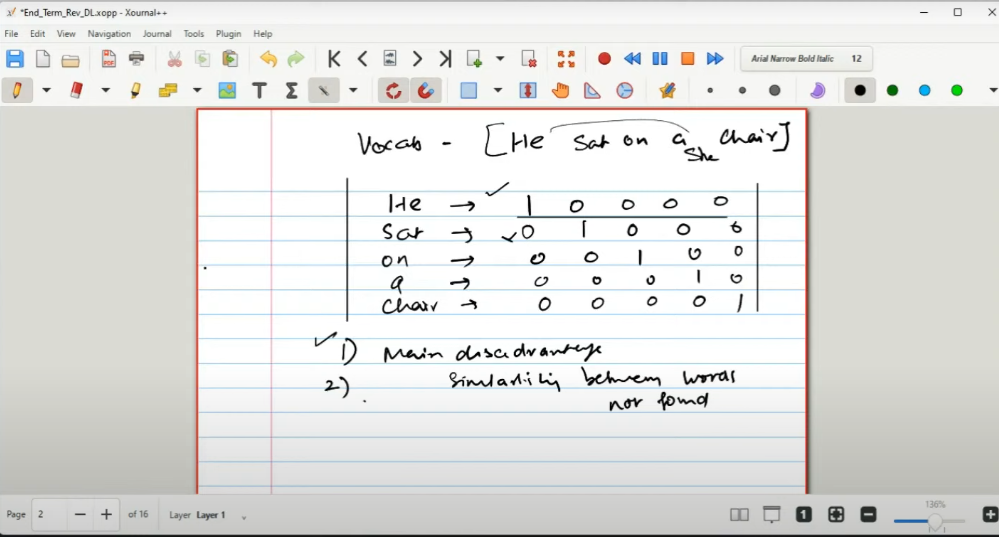 *End_Term_Rev_DL.xopp - Xournal++
File Edit View Navigation Journal Tools Plugin Help
Arial Narrow Bold Italic 12
Vocab - [He Sat on a She Chair]
He → 1 0 0 0 0
Sat → 0 1 0 0 0
on → 0 0 1 0 0
a → 0 0 0 1 0
Chair → 0 0 0 0 1
1) Main disadvantage
2) Similarity between words
not found
Page 2 of 16 Layer Layer 1 136%